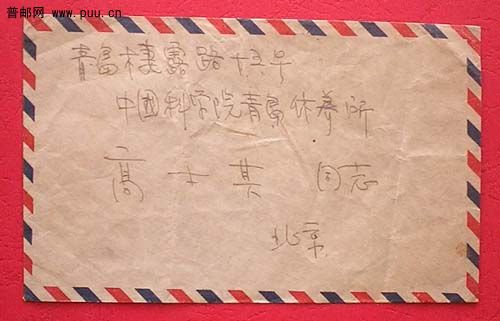 普邮网 www.puu.cn
青岛栖霞路十五号
中國科学院青島休养所
高士其 同志
北京